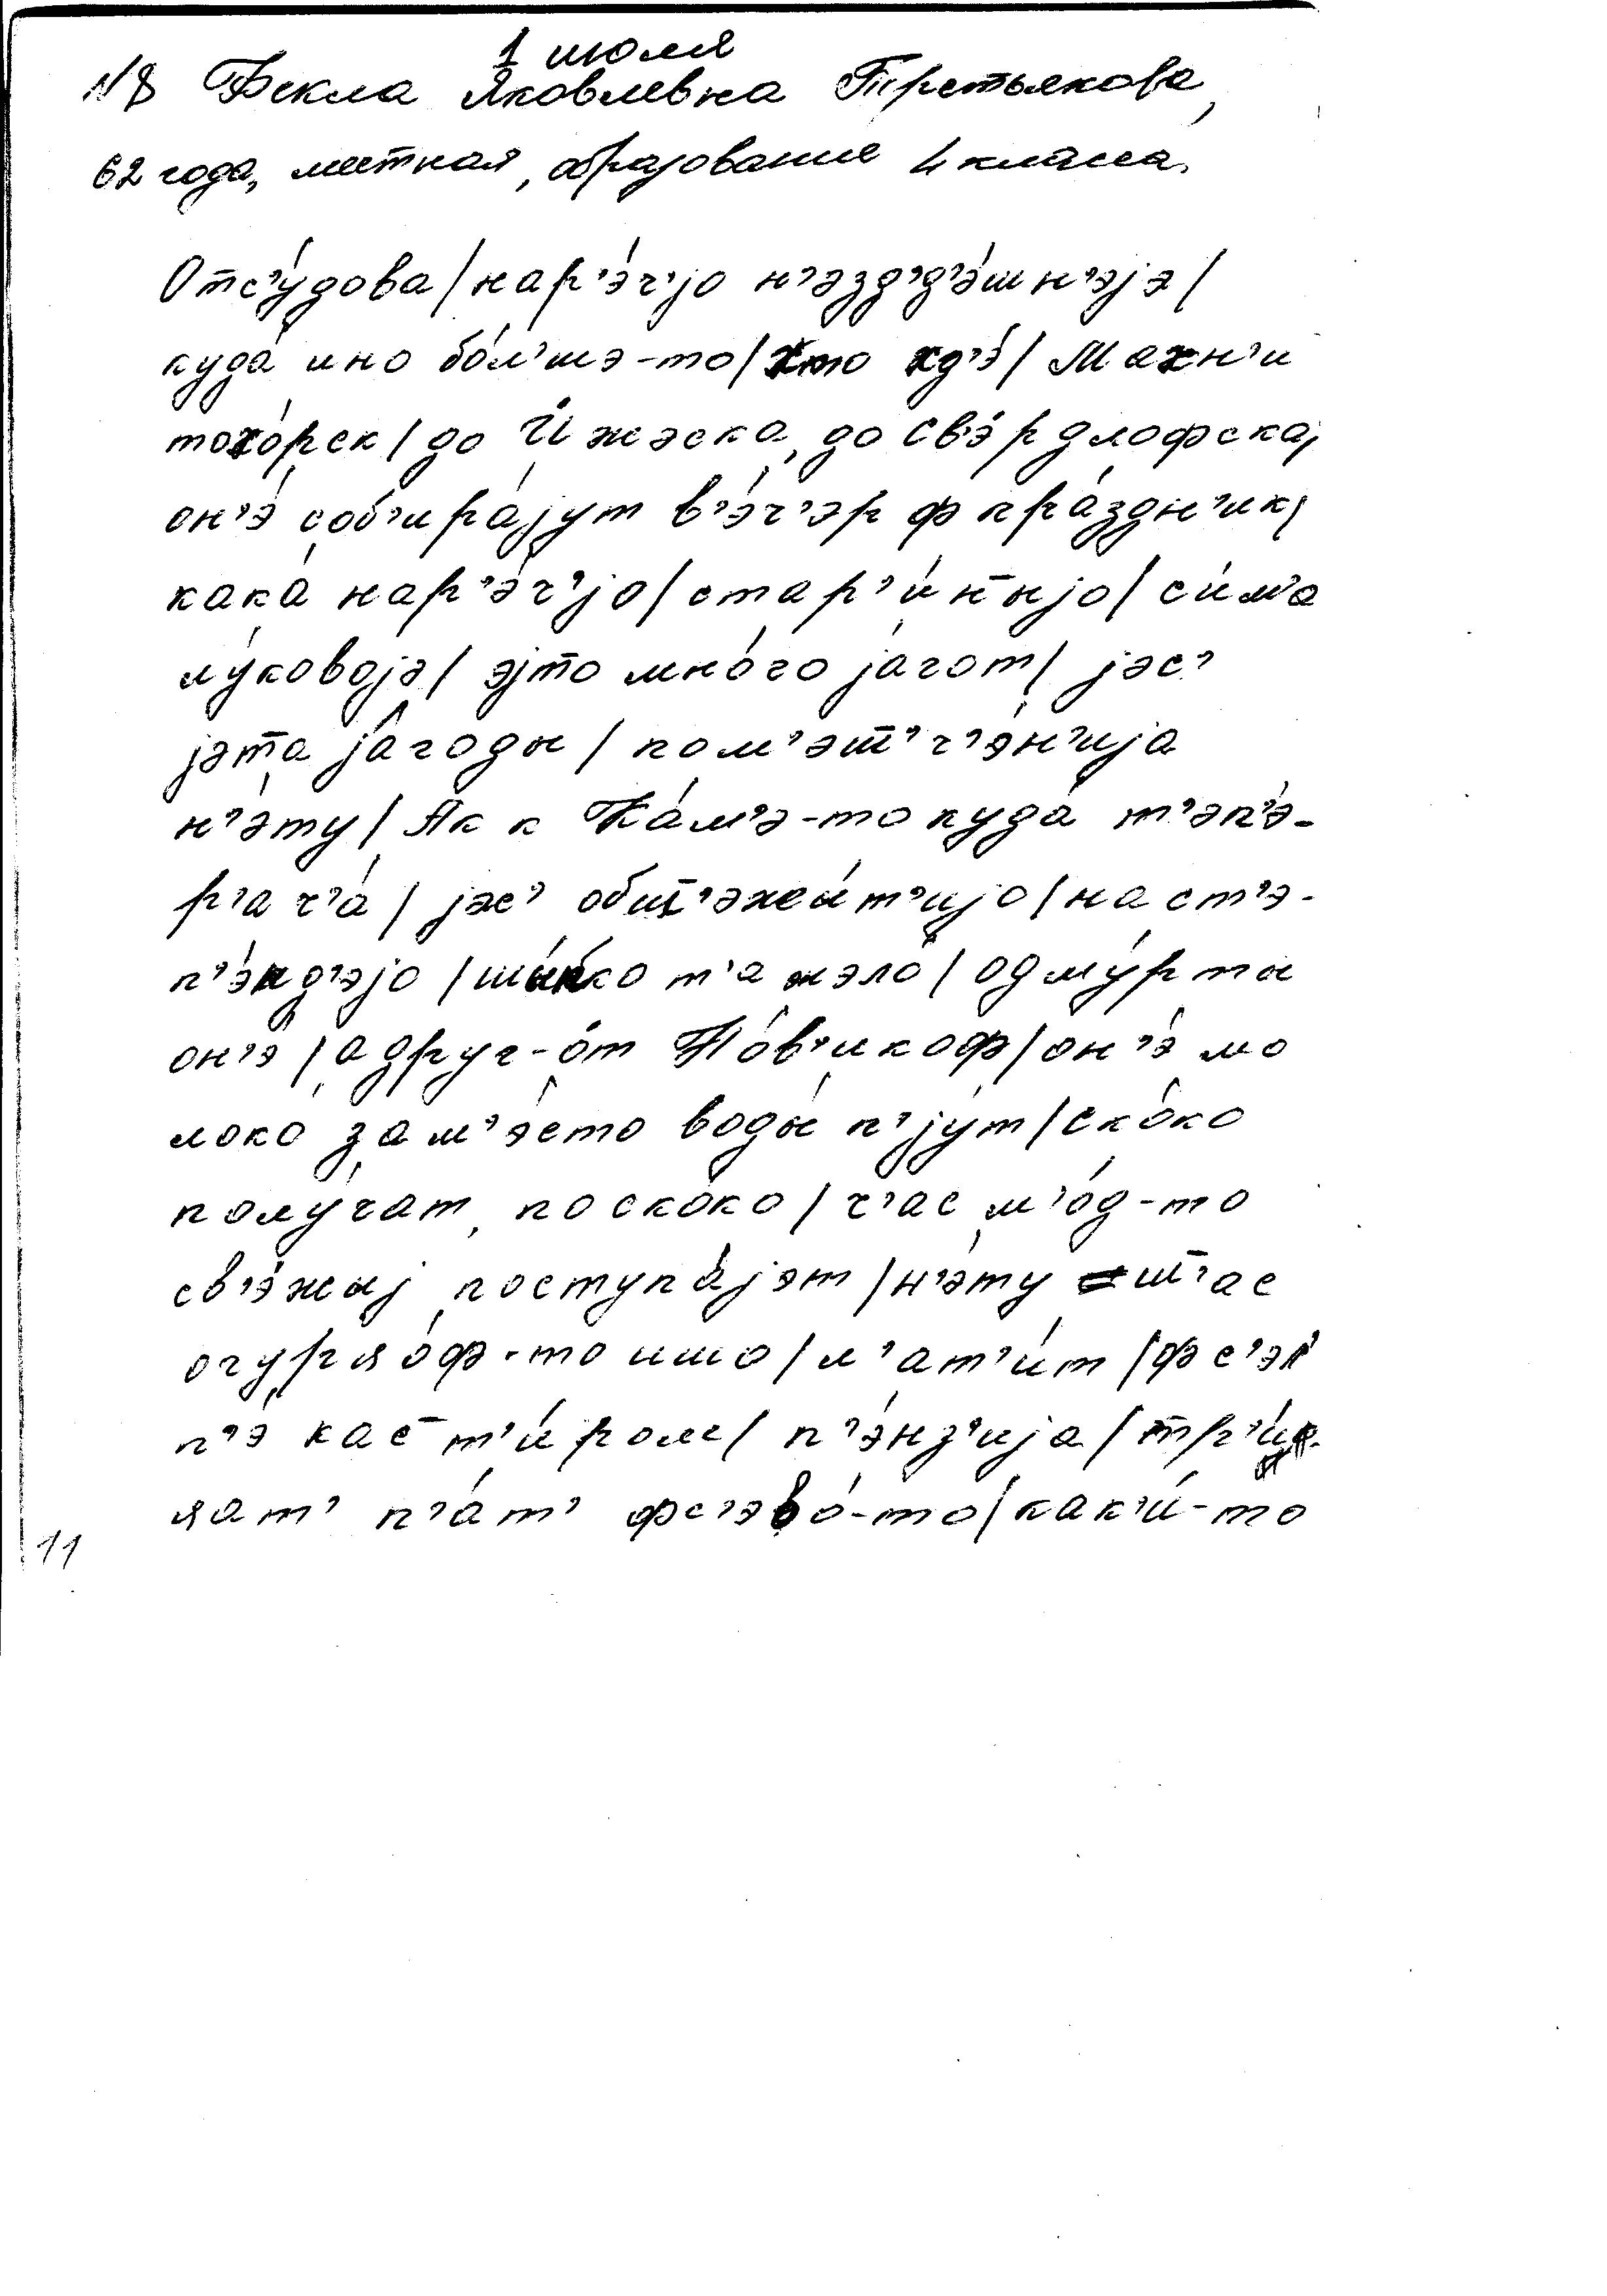 1 июля
№8 Фекла Яковлевна Третьякова,
62 года, местная, образование 4 класса.
Отс’у́дова/нар’э́ч’jо н’эзд’д’э́шн’эjэ/
куда́ ино бо́л’шэ-то/хто хд’э́/Махн’и
тохо́рск/до И́жэска, до Св’э́рдлофска/
он’э́ соб’ира́jут в’э́ч’эр ф пра́здн’ик/
кака́ нар’э́ч’jо/стар’и́н̄ыjо/с’и́м’а
лу́ковоjэ/эjт̄о мно́го jа́гот/jэс’
jэт̄а jа́годы/пом’эш̄’ч’э́н’иjа
н’э́ту/Як к Ка́м’э-то куда́ т’эп’э-
р’ач’а́/jэс’ общ’эжы́т’иjо/на ст’э-
п’э́нд’эjо/шы́пко т’ажэло́/одму́рты
он’э́/а друг-о́т Но́в’икоф/он’э́ мо
локо́ зам’э́сто воды́ п’jу́т/ско́ко
полу́чат, по ско́ко/ч’ас м’о́д-то
св’э́жыj поступа́jэт/н’э́ту ш̄’ас
огурцо́ф-то ишо/л’ат’и́т/фс’эл
п’э кас̄т’и́ром/п’э́нз’иjа/т̄р’иц-
цат’ п’а́т’ фс’эво́-то/как’и́-то
11